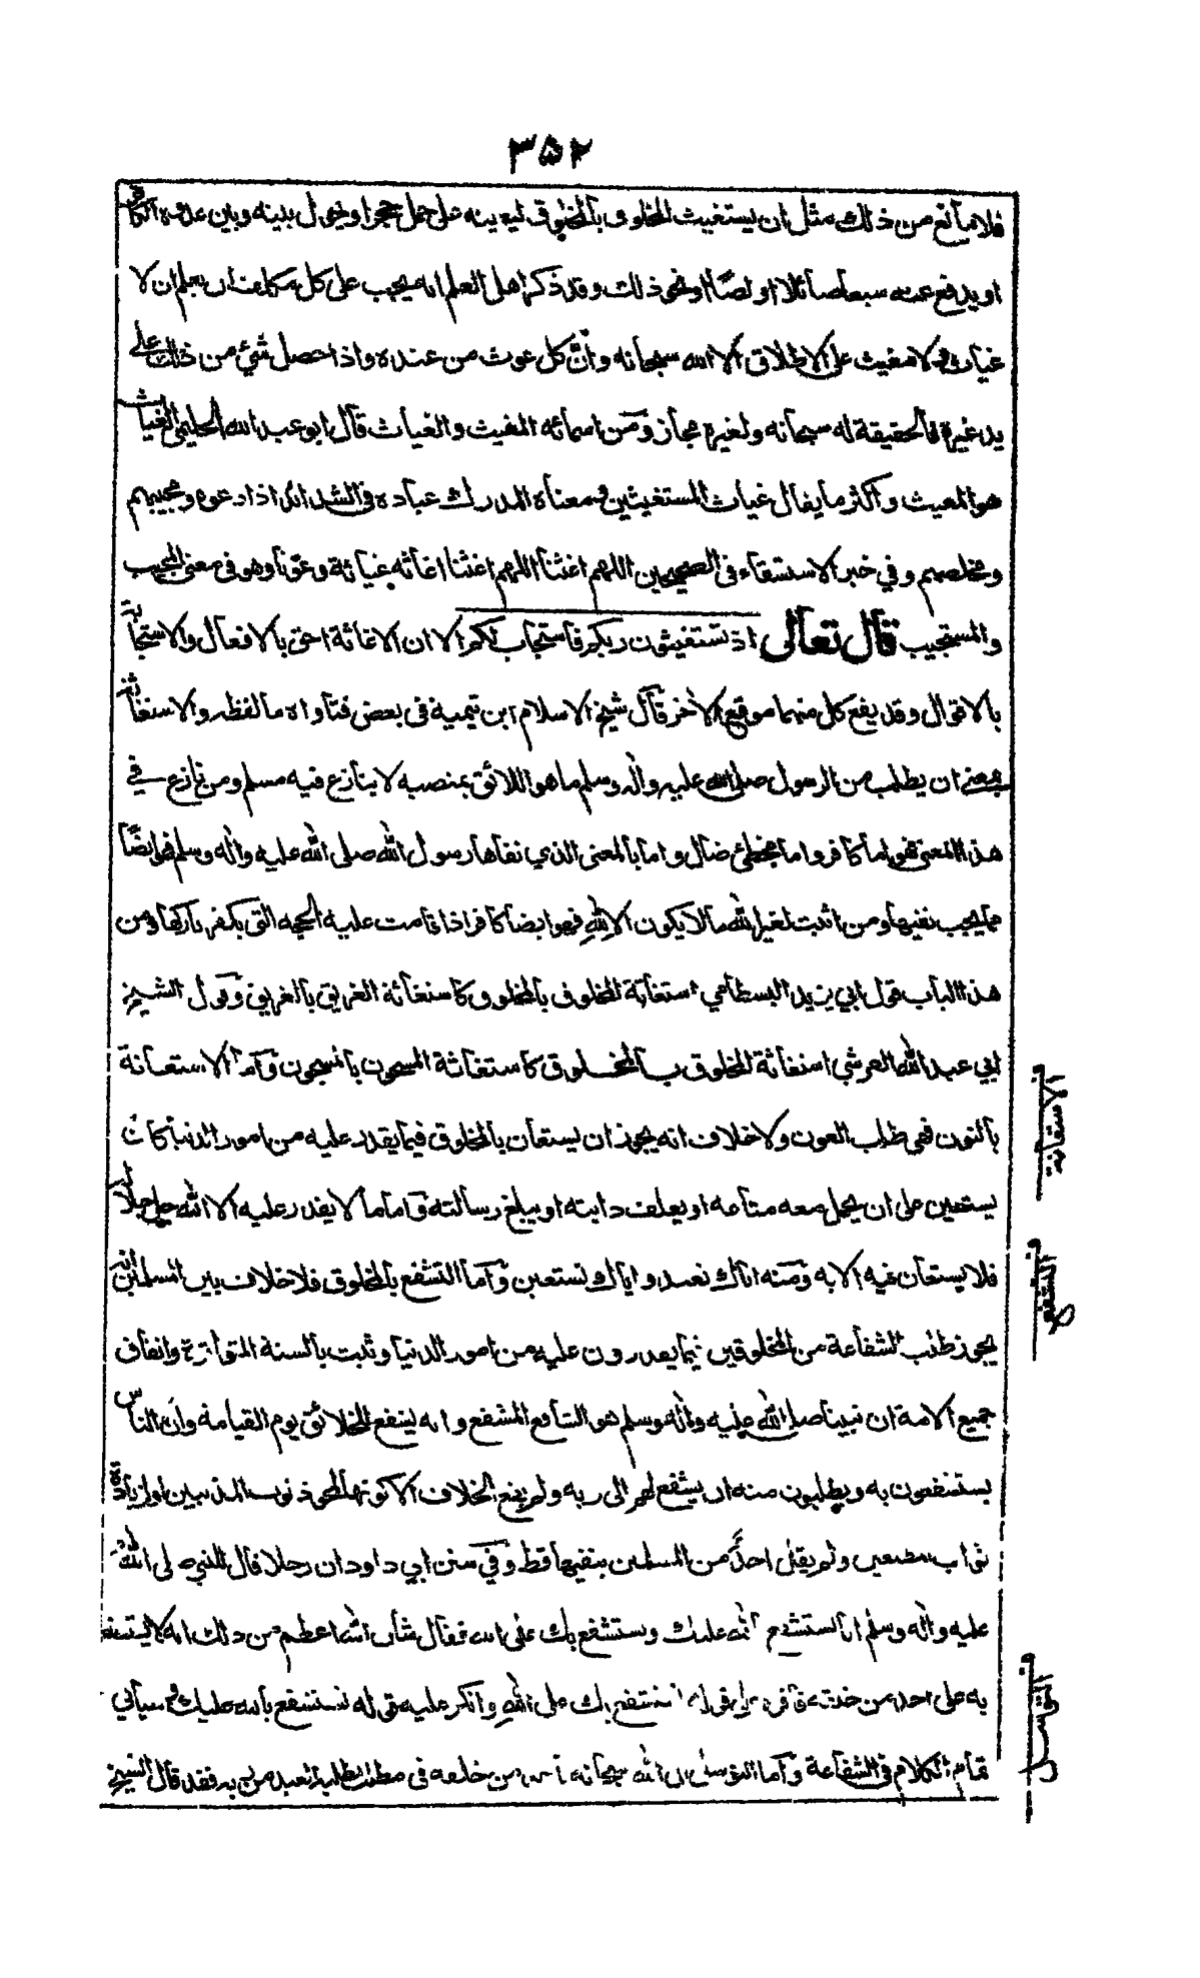 ٣٥٢
فلا مانع من ذلك مثل ان يستغيث المخلوق بالمخلوق ليعينه على حمل حجر او يحول بينه وبين عدوه الكافر
او يدفع عنه سبعا صائلا او لصًّا او نحو ذلك وقد ذكر اهل العلم انه يجب على كل مكلف ان يعلم ان لا
غياث ولا مغيث على الاطلاق الا الله سبحانه وانّ كل غوث من عنده واذا حصل شيء من ذلك على
يد غيره فالحقيقة له سبحانه ولغيره مجاز ومن اسمائه المغيث والغياث قال ابو عبد الله الحليمي الغياث
هو المغيث واكثر ما يقال غياث المستغيثين ومعناه المدرك عباده في الشدائد اذا دعوه ومجيبهم
ومخلصهم وفي خبر الاستسقاء في الصحيحين اللهم اغثنا اللهم اغثنا اغاثه غياثة وغوثا وهو في معنى المجيب
والمستجيب قال تعالى اذ تستغيثون ربكم فاستجاب لكم الا ان الاغاثة احق بالافعال والاستجابة
بالاقوال وقد يقع كل منهما موقع الاخر قال شيخ الاسلام ابن تيمية في بعض فتاواه ما لفظه والاستغاثة
بمعنى ان يطلب من الرسول صلى الله عليه واله وسلم ما هو اللائق بمنصبه لا ينازع فيه مسلم ومن نازع في
هذا المعنى فهو اما كافر واما مخطئ ضال واما بالمعنى الذي نفاها رسول الله صلى الله عليه واله وسلم فهو ايضًا
مما يجب نفيها ومن اثبت لغير الله ما لا يكون الا لله فهو ايضا كافر اذا قامت عليه الحجه التي يكفر تاركها ومن
هذا الباب قول ابي يزيد البسطامي استغاثة المخلوق بالمخلوق كاستغاثة الغريق بالغريق وقول الشيخ
ابي عبد الله القرشي استغاثة المخلوق بالمخلوق كاستغاثة المسجون بالمسجون وآما الاستعانة
بالنون فهي طلب العون ولا خلاف انه يجوز ان يستعان بالمخلوق فيما يقدر عليه من امور الدنيا كان
يستعين على ان يحمل معه متاعه او يعلف دابته او يبلغ رسالته وآما ما لا يقدر عليه الا الله جل جلاله
فلا يستعان فيه الا به ومنه اياك نعبد واياك نستعين وآما التشفع بالمخلوق فلا خلاف بين المسلمين انه
يجوز طلب الشفاعة من المخلوقين فيما يقدرون عليه من امور الدنيا وثبت بالسنة المتواترة واتفاق
جميع الامة ان نبينا صلى الله عليه واله وسلم هو الشافع المشفع وانه ليشفع للخلائق يوم القيامة وان الناس
يستشفعون به ويطلبون منه ان يشفع لهم الى ربه ولم يقع الخلاف الا كونها لمحو ذنوب المذنبين او لزيادة
ثواب المطيعين ولم يقل احدٌ من المسلمين بنفيها قط وفي سنن ابي داود ان رجلا قال للنبي صلى الله
عليه واله وسلم انا نستشفع بالله عليك ونستشفع بك على الله فقال شأن الله اعظم من ذلك انه لا يستشفع
به على احد من خلقه فأقره على قوله نستشفع بك على الله وانكر عليه قوله نستشفع بالله عليك وسيأتي
تمام الكلام في الشفاعة وآما التوسل الى الله سبحانه باحد من خلقه في مطلب يطلبه العبد من ربه فقد قال الشيخ
الاستعانة
التشفع
التوسل